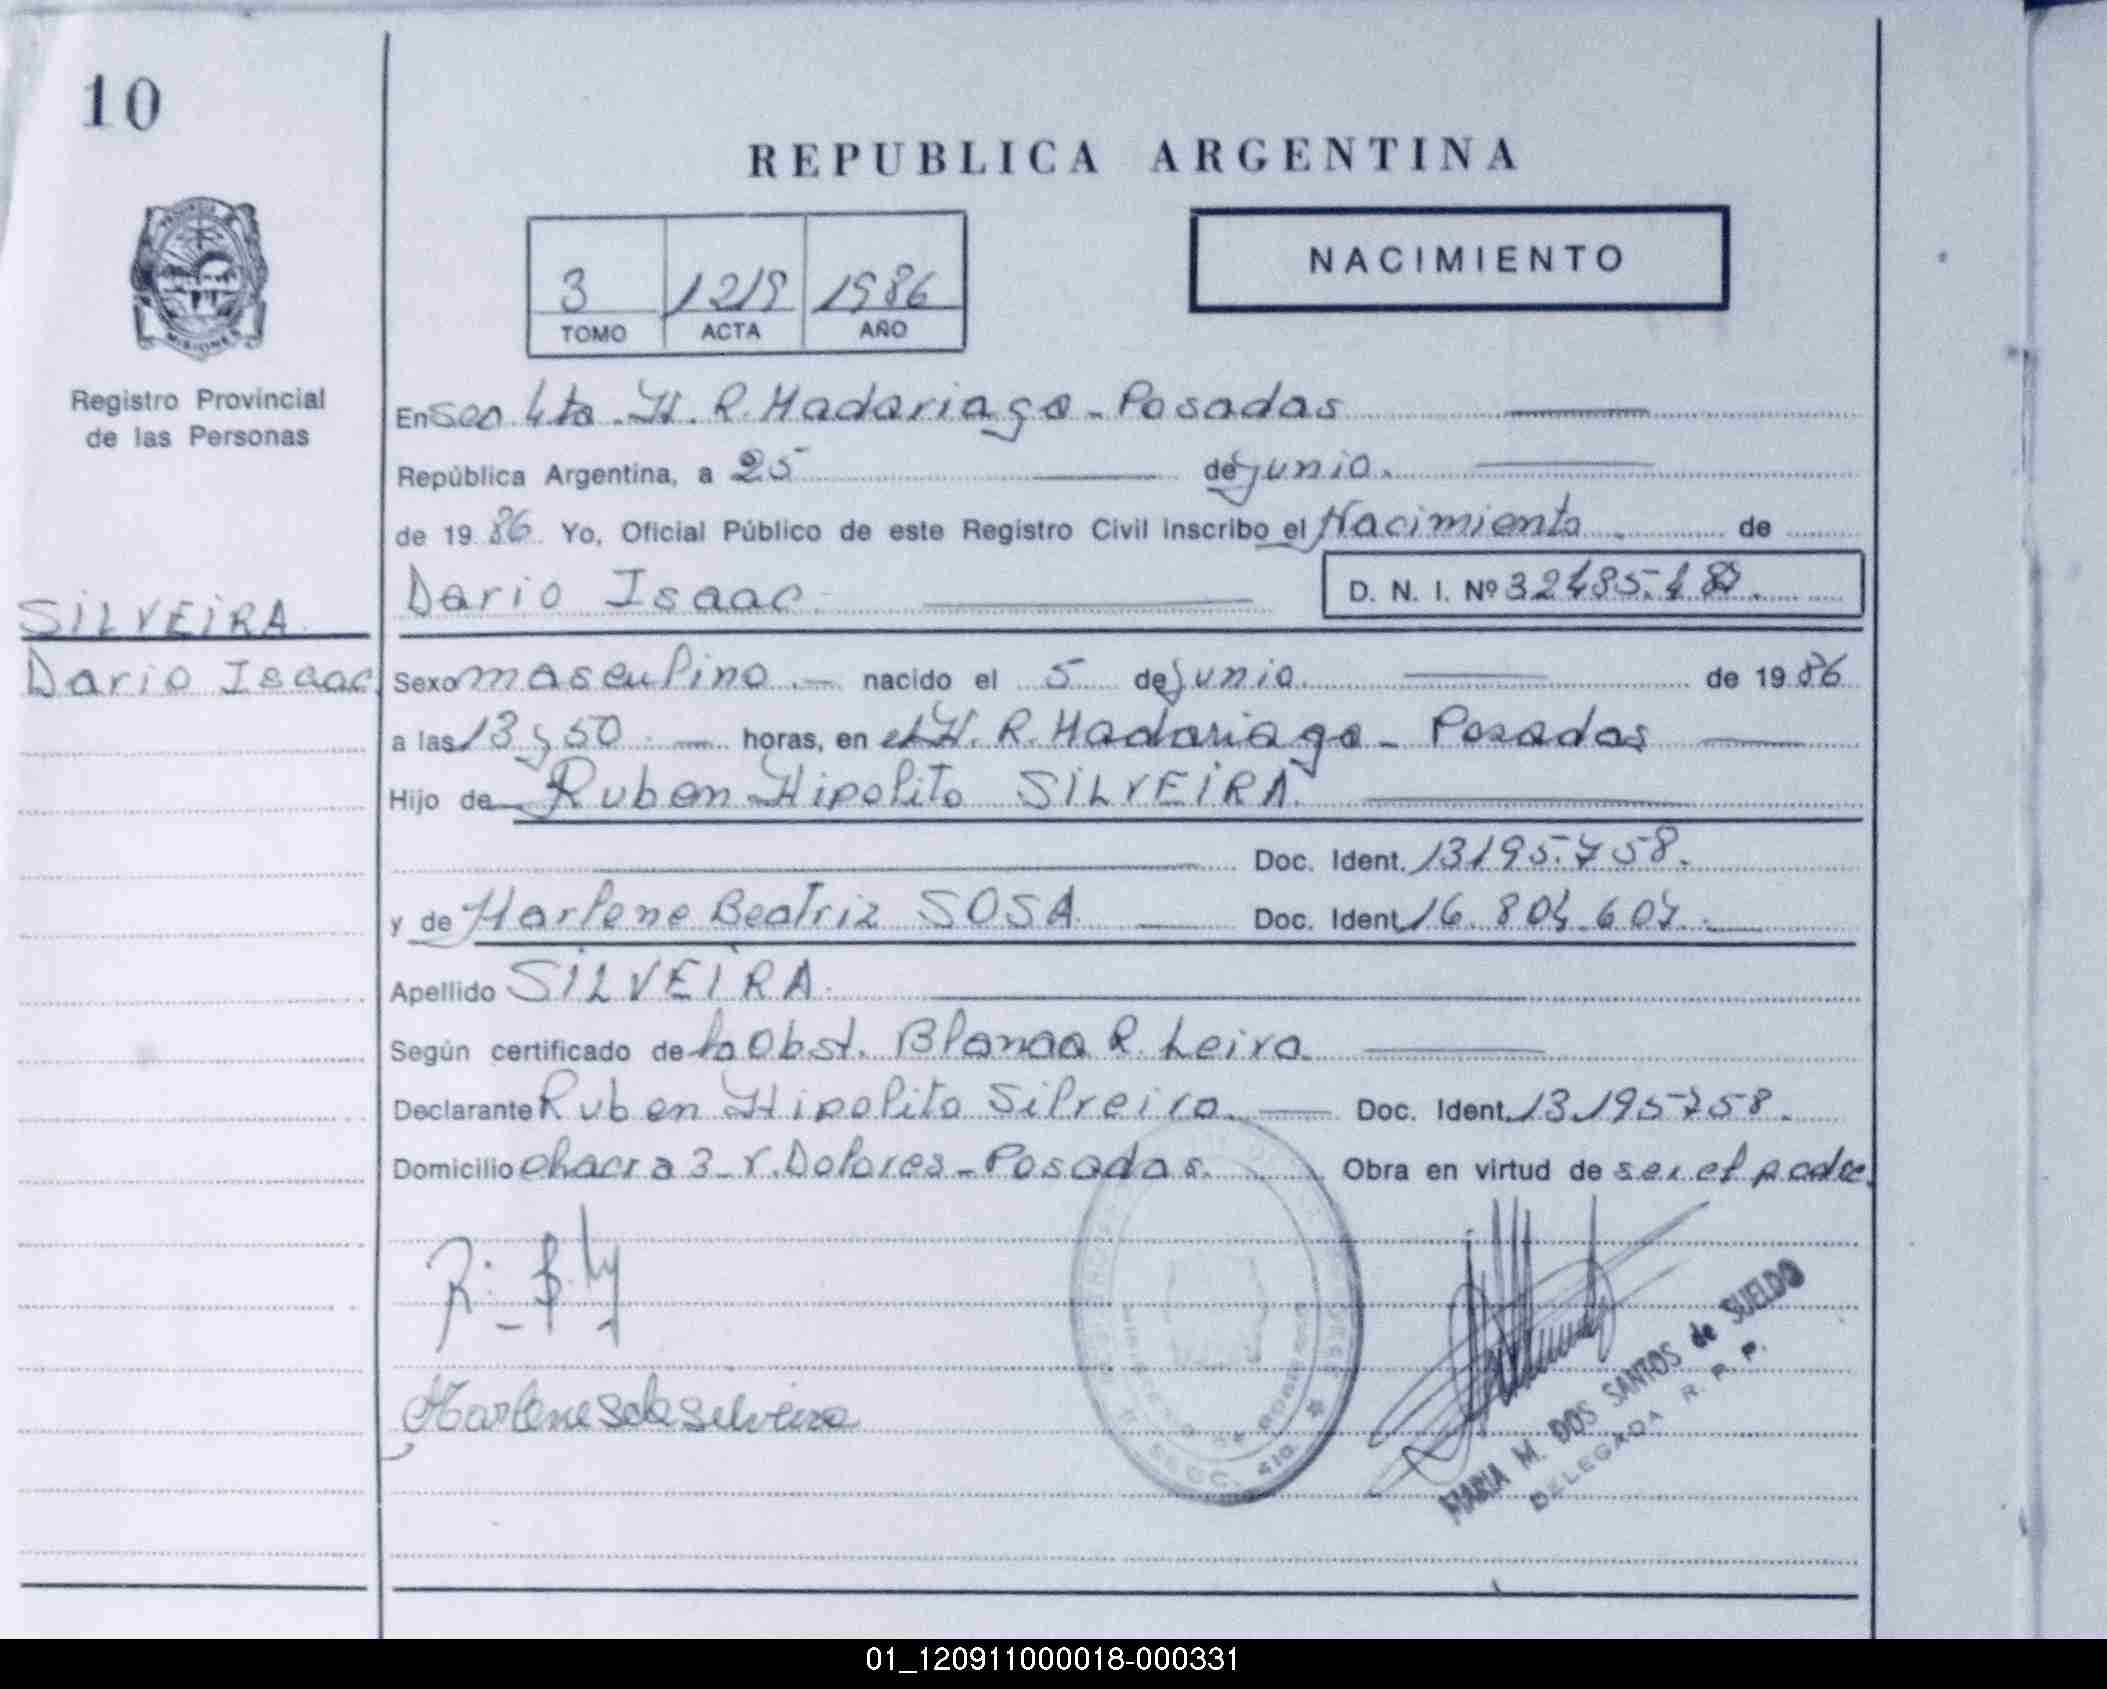 10
REPUBLICA ARGENTINA
NACIMIENTO
3 1219 1986
TOMO ACTA AÑO
Registro Provincial
de las Personas
En Sec 4ta. H. R. Madariaga - Posadas
República Argentina, a 25 de junio.
de 19 86 Yo, Oficial Público de este Registro Civil inscribo el Nacimiento de
Dario Isaac D. N. I. Nº
SILVEIRA
Dario Isaac
Sexo masculino.- nacido el 5 de junio de 19 86
a las 13 y 50 horas, en el H. R. Madariaga - Posadas
Hijo de Ruben Hipolito SILVEIRA
Doc. Ident. 13195.758.
y de Marlene Beatriz SOSA. Doc. Ident. 16.804.607.
Apellido SILVEIRA.
Según certificado de la Obst. Blanca R. Leiva.
Declarante Ruben Hipolito Silveira. Doc. Ident. 13195758.
Domicilio chacra 3- V. Dolores - Posadas. Obra en virtud de ser el padre.
MARIA M. DOS SANTOS de SUELDO
DELEGADA R. P. P.
01_120911000018-000331